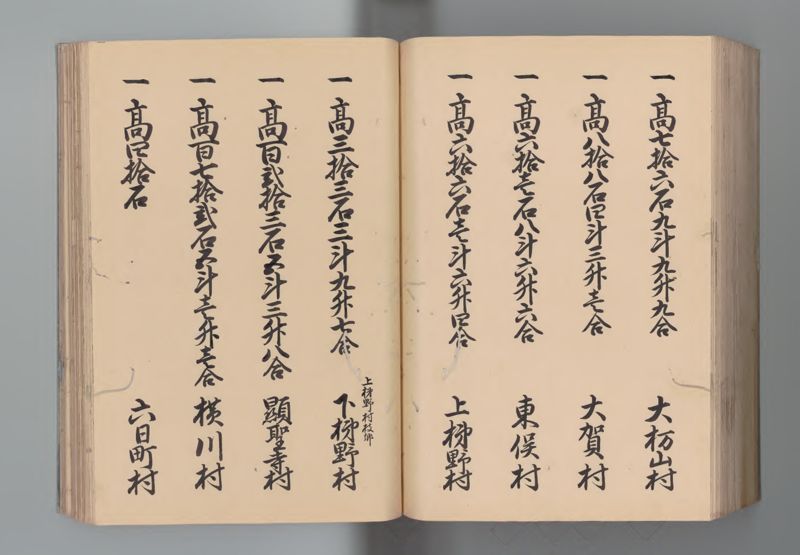 一 高七拾六石九斗九升九合 大坊山村
一 高八拾八石四斗三升壱合 大賀村
一 高六拾壱石八斗六升六合 東俣村
一 高六拾六石壱斗六升四合 上柳野村
上柳野村枝郷
一 高三拾三石三斗九升七合 下柳野村
一 高百弐拾三石五斗三升八合 顯聖寺村
一 高百七拾弐石五斗壱升壱合 横川村
一 高四拾石 六日町村